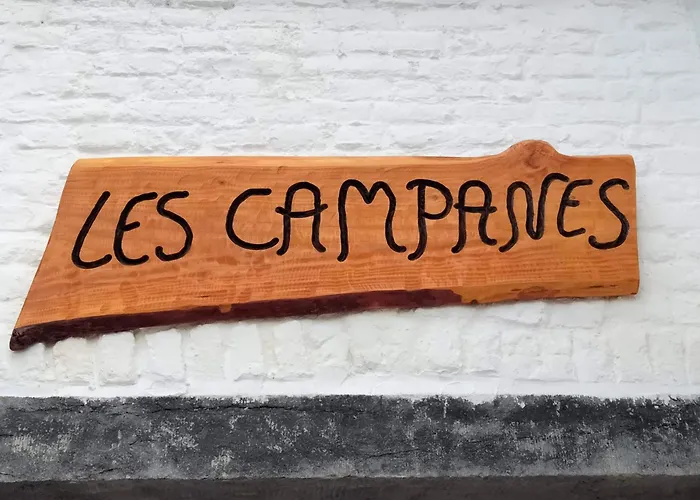 LES CAMPANES